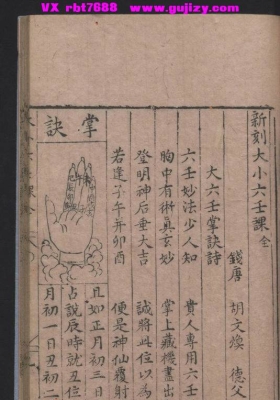 VX rbt7688 www.gujizy.com
新刻大小六壬課全
錢唐 胡文煥 德父
大六壬掌訣詩
六壬妙法少人知 貴人專用六壬
胸中有術真玄妙 掌上藏機畫出
登明神后垂大吉 誠將此位以為
若逢子午并卯酉 便是神仙覆射
掌訣
且如正月初三日
占說辰時就丑位
月初一日丑初二